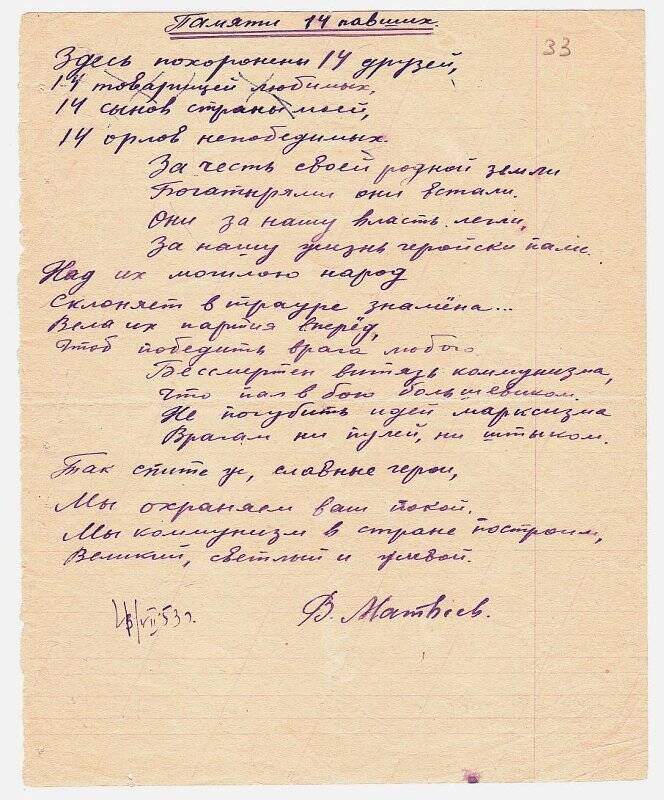 Памяти 14 павших.
33
Здесь похоронены 14 друзей,
14 товарищей любимых,
14 сынов страны моей,
14 орлов непобедимых.
За честь своей родной земли
Богатырями они встали.
Они за нашу власть легли,
За нашу жизнь геройски пали.
Над их могилою народ
Склоняет в трауре знамёна...
Вела их партия вперёд,
Чтоб победить врага любого
Бессмертен витязь коммунизма,
Что пал в бою большевиком.
Не погубить идей марксизма
Врагам ни пулей, ни штыком.
Так спите ж, славные герои,
Мы охраняем ваш покой.
Мы коммунизм в стране построим,
Великий, светлый и живой.
VII 53 г.
В. Матвеев.